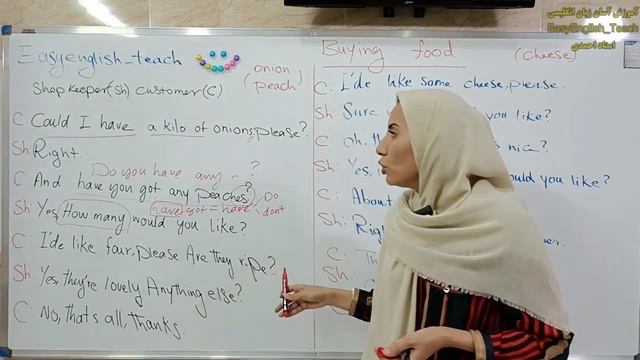 آموزش آسان زبان انگلیسی
EasyEnglish_Teach
استاد احمدی
Easyenglish_teach
onion
(peach)
Shop Keeper(sh) customer(C)
C: Could I have a kilo of onions, please?
Sh: Right.
Do you have any ..?
C: And have you got any peaches?
have got = have
Do
don't
Sh: Yes, How many would you like?
C: I'de like four, please Are they ripe?
Sh: Yes, they're lovely Anything else?
C: No, that's all, thanks.
Buying food
(cheese)
C: I'de like some cheese, please.
Sh: Sure you like?
C: oh. nice.
Sh: Yes, would you like?
C: About
Sh: Right
C:
Sh.